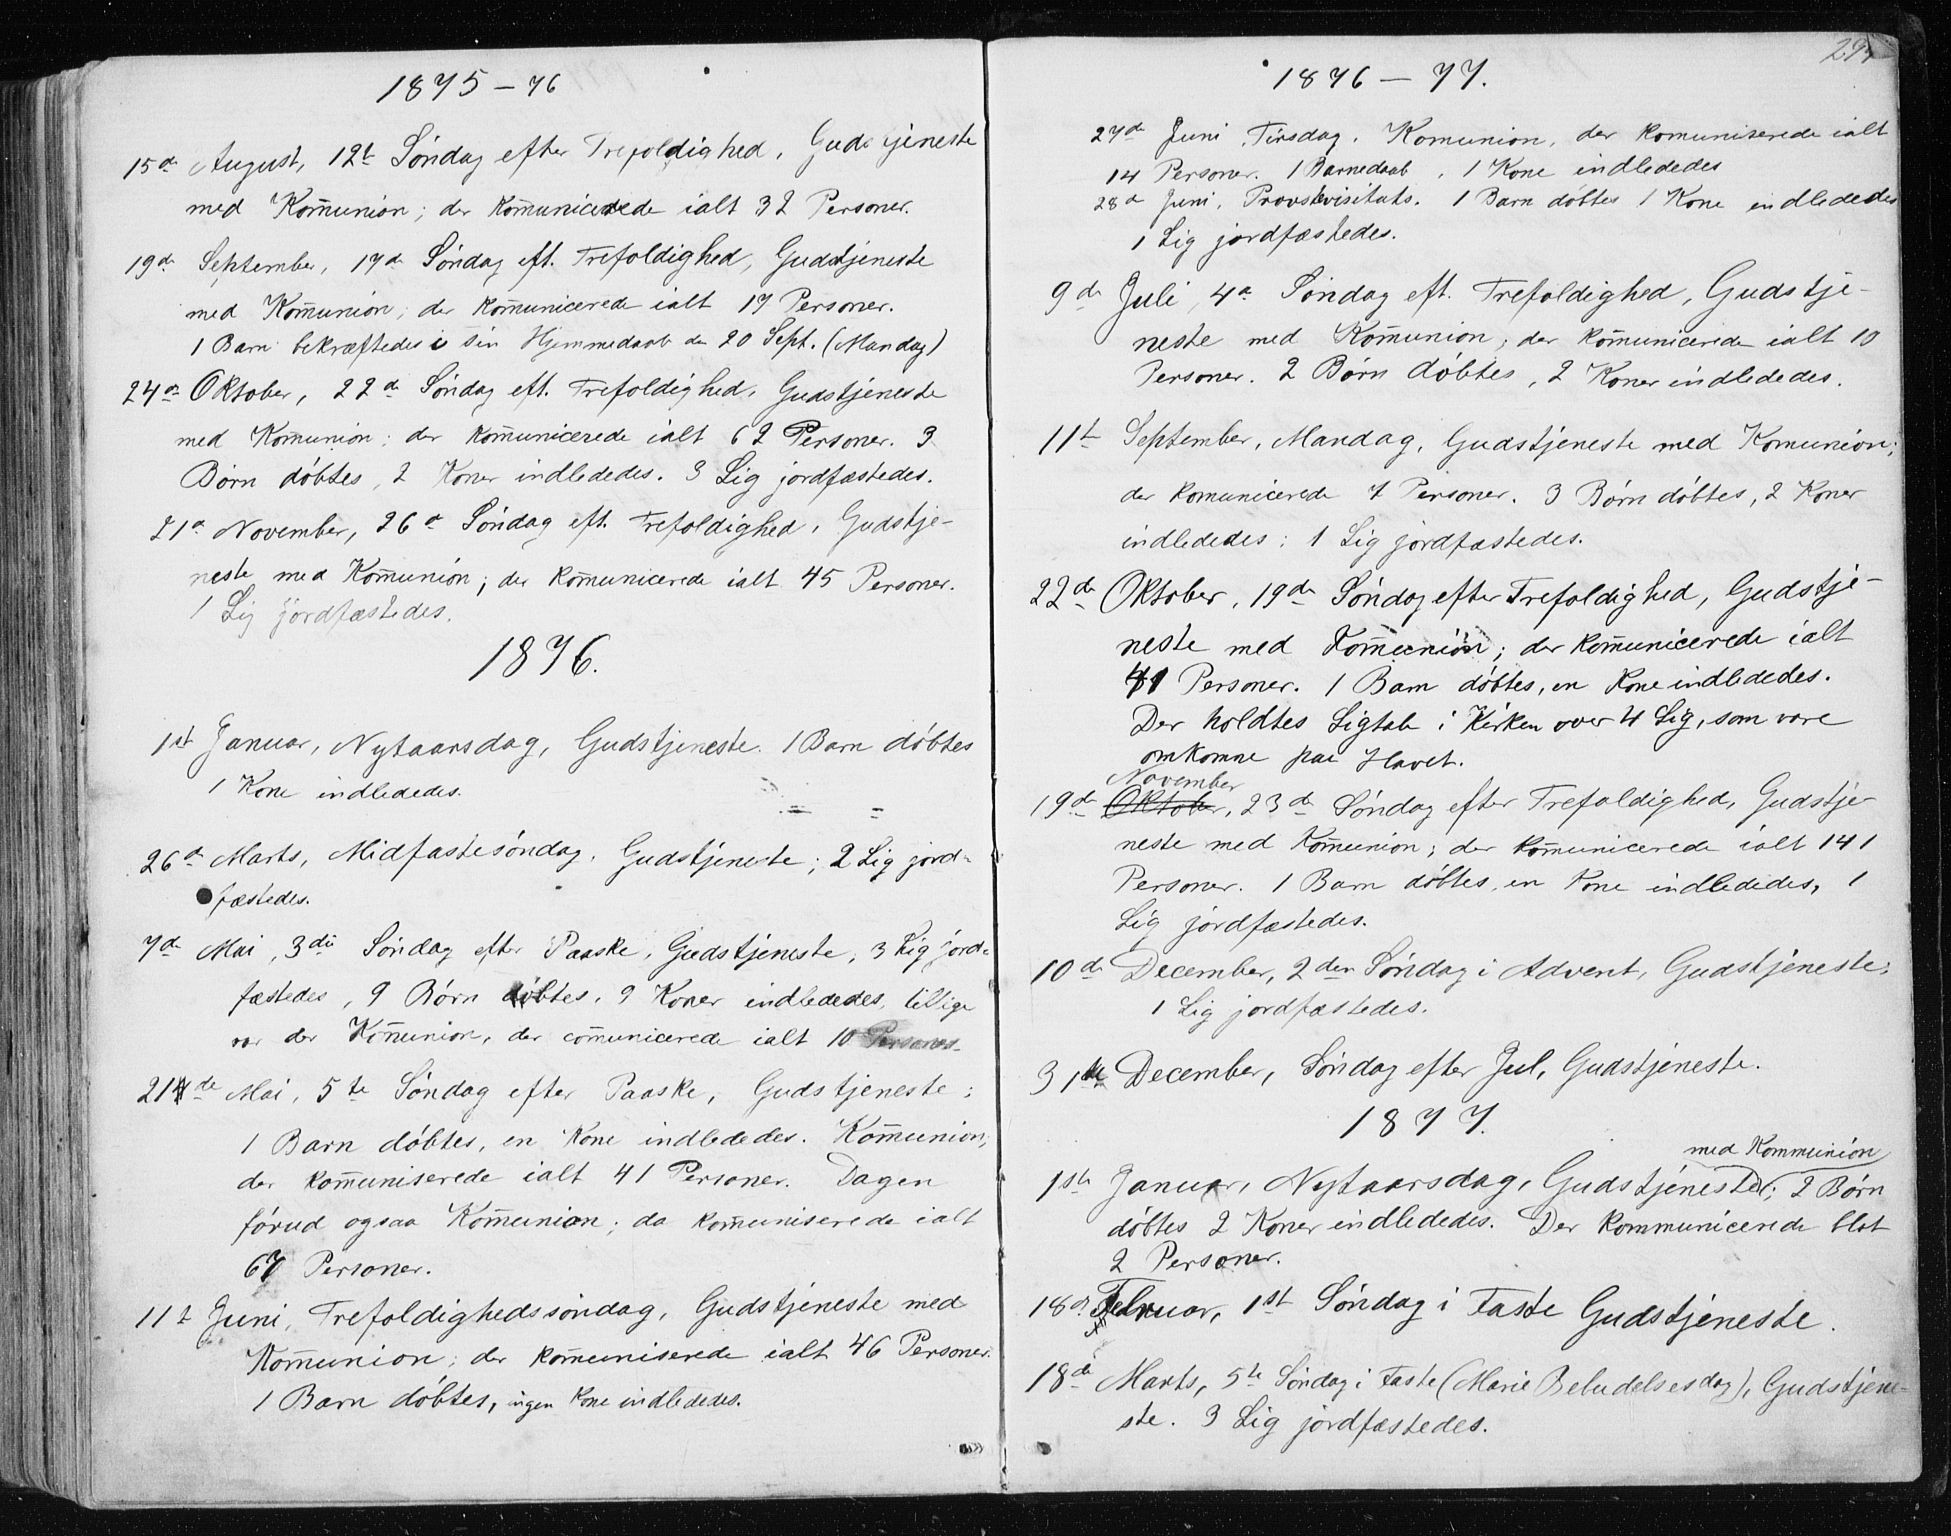 1875 – 76
15de August, 12te Søndag efter Trefoldighed, Gudstjeneste
med Kom̄union; der kom̄unicerede ialt 32 Personer.
19de September, 17de Søndag eft. Trefoldighed, Gudstjeneste
med Kom̄union; der kom̄unicerede ialt 17 Personer.
1 Barn bekræftedes i sin Hjemmedaab den 20 Sept. (Mandag)
24de Oktober, 22de Søndag eft. Trefoldighed, Gudstjeneste
med Kom̄union; der kom̄unicerede ialt 62 Personer. 3
Børn døbtes, 2 Koner indlededes. 3 Lig jordfæstedes.
21de November, 26de Søndag eft. Trefoldighed, Gudstje-
neste med Kom̄union; der kom̄unicerede ialt 45 Personer.
1 Lig jordfæstedes.
1876.
1ste Januar, Nytaarsdag, Gudstjeneste. 1 Barn døbtes
1 Kone indlededes.
26de Marts, Midfastesøndag, Gudstjeneste; 2 Lig jord-
fæstedes.
7de Mai, 3die Søndag efter Paaske, Gudstjeneste, 3 Lig jord-
fæstedes, 9 Børn døbtes, 9 Koner indlededes, tillige
var der Kom̄union, der com̄unicerede ialt 10 Personer.
21de Mai, 5te Søndag efter Paaske, Gudstjeneste;
1 Barn døbtes, en Kone indlededes. Kom̄union,
der kom̄uniserede ialt 41 Personer. Dagen
førud ogsaa Kom̄union; da kom̄uniserede ialt
67 Personer.
11te Juni, Trefoldighedssøndag, Gudstjeneste med
Kom̄union; der kom̄uniserede ialt 46 Personer.
1 Barn døbtes, ingen Kone indlededes.
1876 – 77.
27de Juni, Tirsdag, Komunion, der komuniserede ialt
14 Personer. 1 Barnedaab, 1 Kone indlededes
28de Juni, Provstevisitats. 1 Barn døbtes 1 Kone indlededes
1 Lig jordfæstedes.
9de Juli, 4de Søndag eft. Trefoldighed, Gudstje-
neste med Kom̄union; der kom̄unicerede ialt 10
Personer. 2 Børn døbtes, 2 Koner indlededes.
11te September, Mandag, Gudstjeneste med Komunion;
der komunicerede 7 Personer. 3 Børn døbtes, 2 Koner
indlededes; 1 Lig jordfæstedes.
22de Oktober, 19de Søndag efter Trefoldighed, Gudstje-
neste med Kom̄union; der kom̄unicerede ialt
41 Personer. 1 Barn døbtes, en Kone indlededes.
Der holdtes Ligtale i Kirken over 4 Lig, som vare
omkomne paa Havet.
November
19de Oktober, 23de Søndag efter Trefoldighed, Gudstje-
neste med Kom̄union; der kom̄unicerede ialt 141
Personer. 1 Barn døbtes, en Kone indlededes, 1
Lig jordfæstedes.
10de December, 2den Søndag i Advent, Gudstjeneste;
1 Lig jordfæstedes.
31te December, Søndag efter Jul, Gudstjeneste.
1877.
med Kommunion
1ste Januar, Nytaarsdag, Gudstjeneste; 2 Børn
døbtes 2 Koner indlededes. Der kommunicerede blot
2 Personer.
18de Februar, 1ste Søndag i Faste Gudstjeneste.
18de Marts, 5te Søndag i Faste (Marie Bebudelsesdag), Gudstjene-
ste. 3 Lig jordfæstedes.